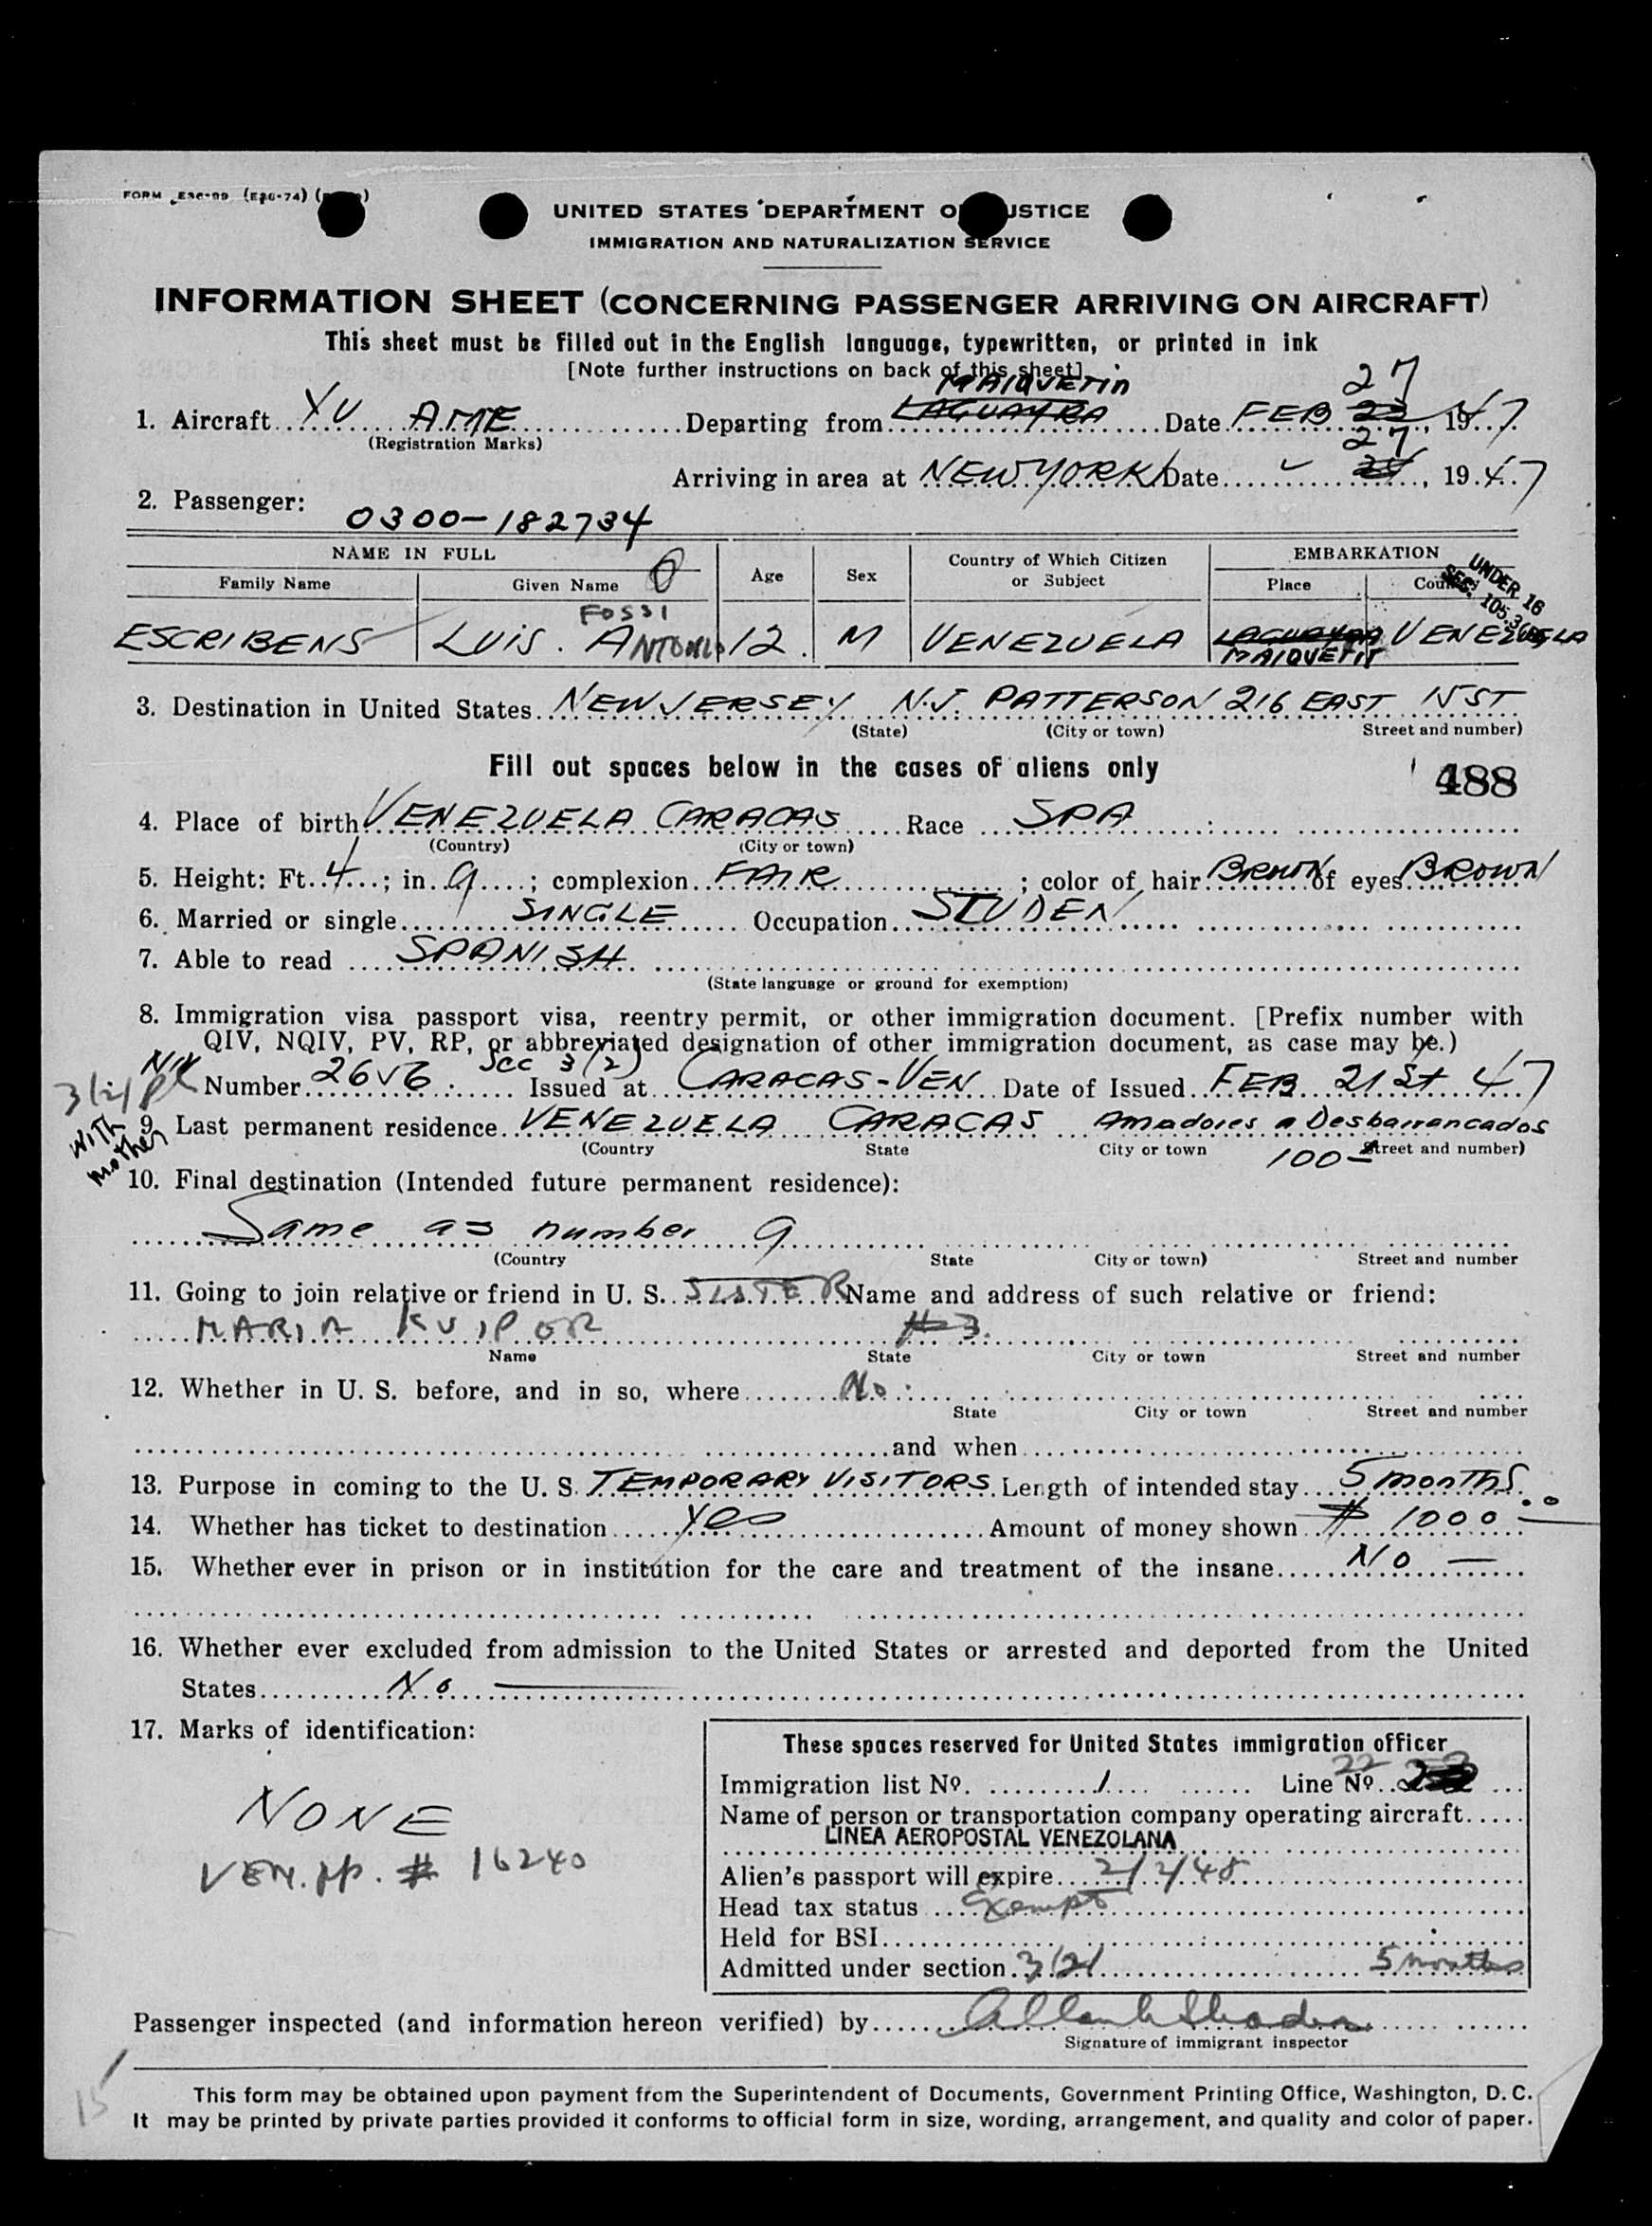 UNITED STATES DEPARTMENT O JUSTICE
IMMIGRATION AND NATURALIZATION SERVICE
INFORMATION SHEET (CONCERNING PASSENGER ARRIVING ON AIRCRAFT)
This sheet must be filled out in the English language, typewritten, or printed in ink
[Note further instructions on back of this sheet]
MAIQUETIA 27
1. Aircraft YV AME Departing from LAGUAYRA Date FEB 22, 1947
(Registration Marks) 27
Arriving in area at NEW YORK Date , 1947
2. Passenger: 0300-182734
NAME IN FULL Age Sex Country of Which Citizen or Subject EMBARKATION
Family Name Given Name Place Country
UNDER 16
SEC. 105.3
FOSSI
ESCRIBENS LUIS. ANTONIO 12. M VENEZUELA LAGUAYRA VENEZUELA
MAIQUETIA
3. Destination in United States NEW JERSEY N.J. PATTERSON 216 EAST 15 ST
(State) (City or town) Street and number)
Fill out spaces below in the cases of aliens only
488
4. Place of birth VENEZUELA CARACAS Race SPA
(Country) (City or town)
5. Height: Ft. 4; in. 9; complexion FAIR; color of hair BROWN of eyes BROWN
6. Married or single SINGLE Occupation STUDEN
7. Able to read SPANISH
(State language or ground for exemption)
8. Immigration visa passport visa, reentry permit, or other immigration document. [Prefix number with
QIV, NQIV, PV, RP, or abbreviated designation of other immigration document, as case may be.)
Sec 3 (2)
3(2)
Number 26v6 Issued at CARACAS-VEN Date of Issued FEB 21st 47
with mother
9. Last permanent residence VENEZUELA CARACAS Amadores a Desbarrancados
(Country State City or town 100- Street and number)
10. Final destination (Intended future permanent residence):
Same as number 9
(Country State City or town) Street and number
11. Going to join relative or friend in U. S. SISTER Name and address of such relative or friend:
MARIA KUIPOR #3.
Name State City or town Street and number
12. Whether in U. S. before, and in so, where No
State City or town Street and number
and when
13. Purpose in coming to the U. S. TEMPORARY VISITORS Length of intended stay 5 months.
14. Whether has ticket to destination Yes Amount of money shown $ 1000.00
15. Whether ever in prison or in institution for the care and treatment of the insane No —
16. Whether ever excluded from admission to the United States or arrested and deported from the United
States No
17. Marks of identification:
NONE
VEN. pp. # 16240
These spaces reserved for United States immigration officer
22
Immigration list No. 1 Line No.
Name of person or transportation company operating aircraft
LINEA AEROPOSTAL VENEZOLANA
Alien's passport will expire 2/2/48
Head tax status Exempt
Held for BSI
Admitted under section 3(2) 5 months
Passenger inspected (and information hereon verified) by
Signature of immigrant inspector
15
This form may be obtained upon payment from the Superintendent of Documents, Government Printing Office, Washington, D. C.
It may be printed by private parties provided it conforms to official form in size, wording, arrangement, and quality and color of paper.